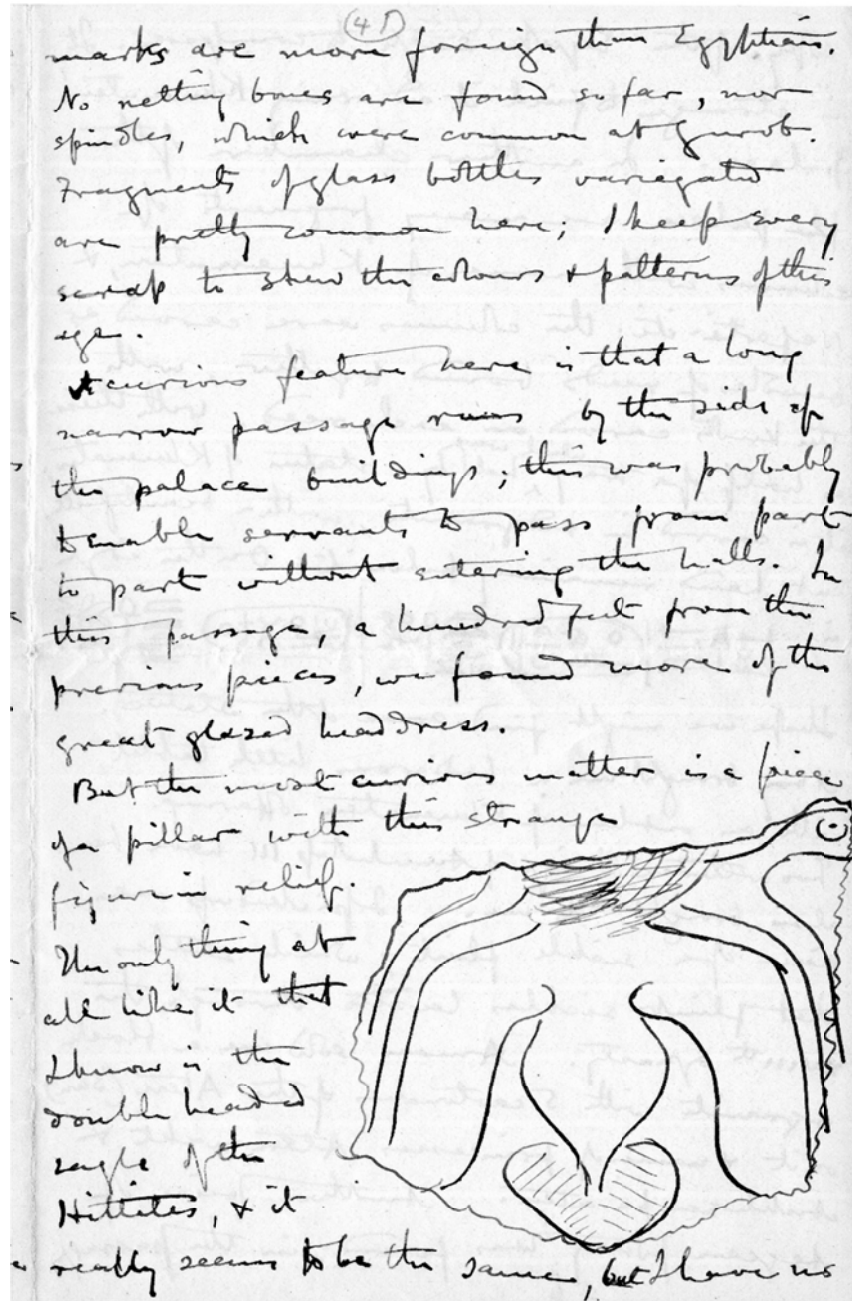 (41)
marks are more foreign than Egyptian.
No netting bones are found so far, nor
spindles, which were common at Gurob.
Fragments of glass bottles variegated
are pretty common here; I keep every
scrap to shew the colours & patterns of this
age.
A curious feature here is that a long
narrow passage runs by the side of
the palace buildings; this was probably
to enable servants to pass from part
to part without entering the halls. In
this passage, a hundred feet from the
previous pieces, we found more of the
great glazed headdress.
But the most curious matter is a piece
of a pillar with this strange
figure in relief.
The only thing at
all like it that
I know is the
double headed
eagle of the
Hittites, & it
really seems to be the same, but I have no